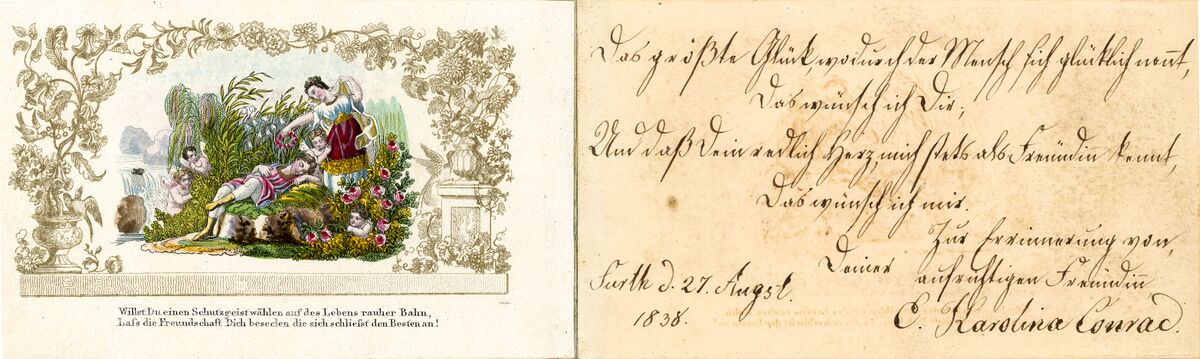 Willst Du einen Schutzgeist wählen auf des Lebens rauher Bahn,
Laſs die Freundschaft Dich beseelen die sich schlieſst den Besten an!
Das größte Glück, wodurch der Mensch sich glücklich nen̄t,
Das wünsch ich Dir;
Und daß Dein redlich Herz, mich stets als Freundin̄ kennt,
Das wünsch ich mir.
Zur Errinnerung von,
Deiner aufrichtigen Freundin̄
C. Karolina Conrad.
Furth d. 27. Augst.
1838.